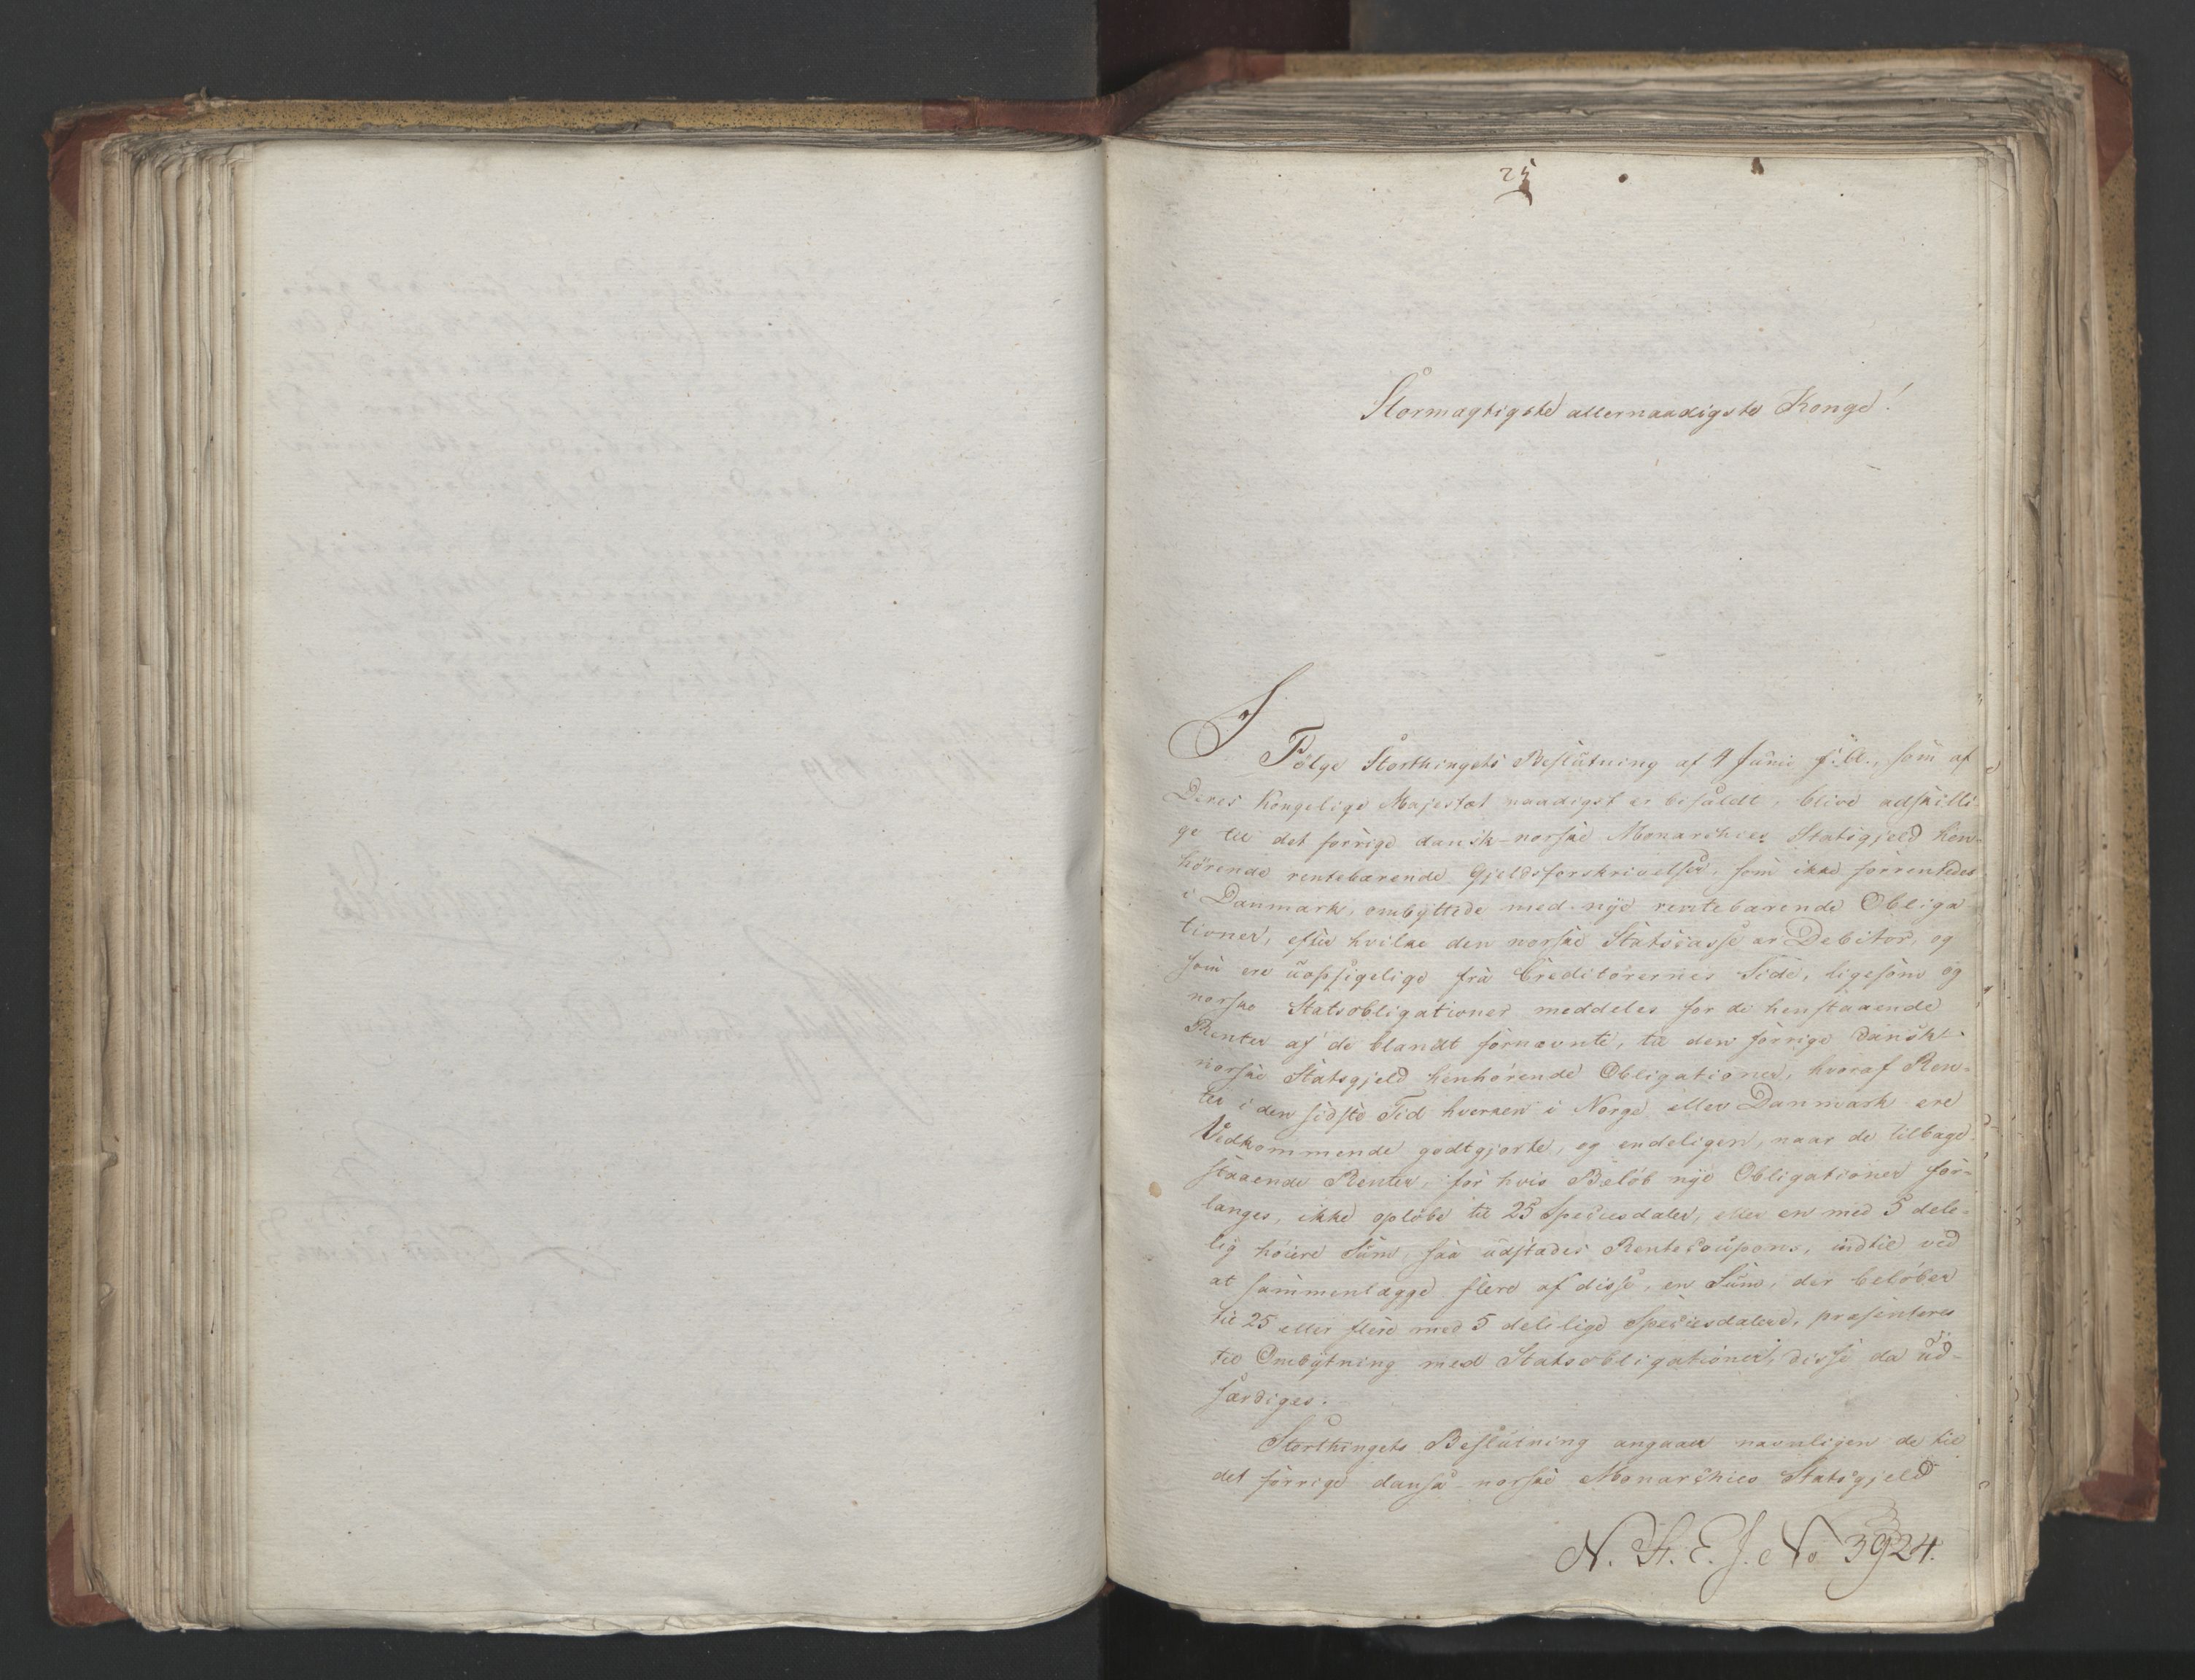 25
Stormægtigste allernaadigste Konge!
I Følge Storthingets Beslutning af 4 Junii f. A., som af
Deres Kongelige Majestæt naadigst er bifaldt, blive adskilli-
ge til det forrige dansk-norske Monarchies Statsgjeld hen-
hørende rentebærende Gjeldsforskrivelser, som ikke forrentedes
i Danmark, ombyttede med nye rentebærende Obliga
tioner, efter hvilke den norske Statscasse er Debitor, og
som ere uopsigelige fra Creditorernes Side, ligesom og
norske Statsobligationer meddeles for de henstaaende
Renter af de blandt fornævnte, til den forrige dansk-
norske Statsgjeld henhørende Obligationer, hvoraf Ren-
ter i den sidste Tid hverken i Norge eller Danmark ere
Vedkommende godtgjorte, og endeligen, naar de tilbage
staaende Renter, for hvis Beløb nye Obligationer for-
langes, ikke opløbe til 25 Speciesdaler, eller en med 5 dele-
lig høiere Sum, saa udstædes Rentecoupons, indtil ved
at sammenlægge flere af disse, en Sum, der beløber
til 25 eller flere med 5 delelige Speciesdalere, præsenteres
til Ombytning med Statsobligationer, disse da ud-
færdiges.
Storthingets Beslutning angaaer navnligen de til
det forrige danske norske Monarchies Statsgjeld
N. St. E. J. No 3924.